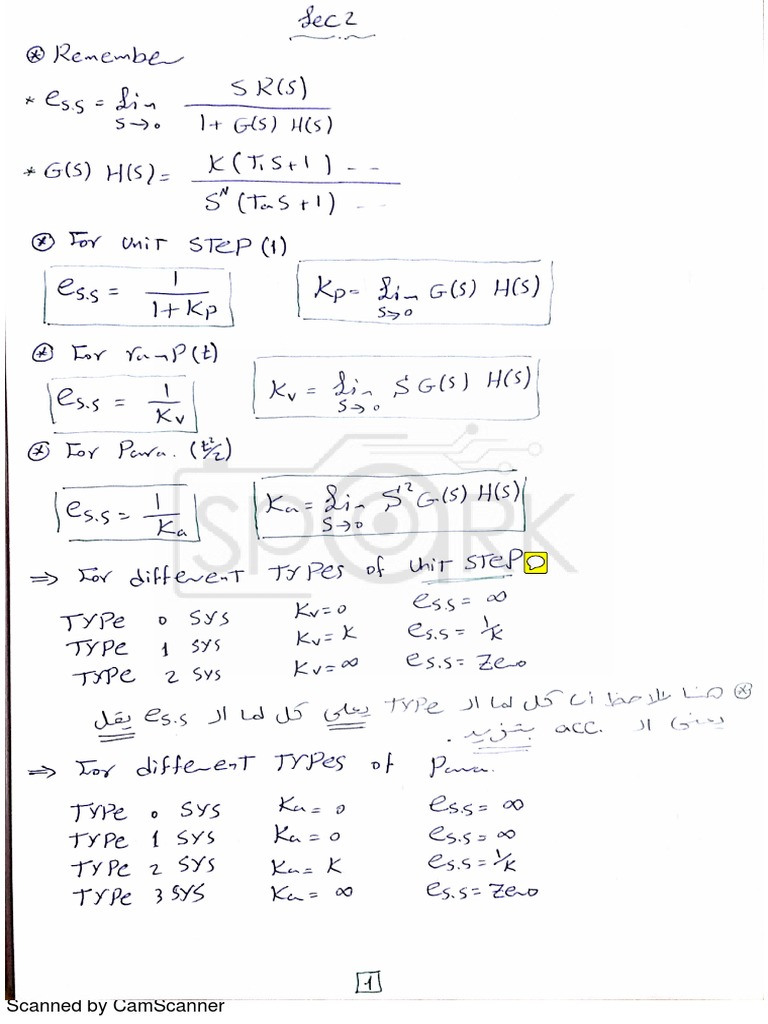 Sec 2
⊛ Remember
* es.s = Lim S→0 S R(S) / 1 + G(S) H(S)
* G(S) H(S) = K (T1 S + 1) -- / S^N (Ta S + 1) --
⊛ For unit STEP (1)
es.s = 1 / 1 + Kp    Kp = Lim S→0 G(S) H(S)
⊛ For ramp (t)
es.s = 1 / Kv    Kv = Lim S→0 S G(S) H(S)
⊛ For Para. (t²/2)
es.s = 1 / Ka    Ka = Lim S→0 S² G(S) H(S)
SPARK
⇒ For different TYPes of unit STEP
TYPe 0 SYS    Kv = 0    es.s = ∞
TYPe 1 SYS    Kv = K    es.s = 1/K
TYPe 2 SYS    Kv = ∞    es.s = Zero
⊛ هنا نلاحظ أن كل لما الـ TYPE يعلى كل لما الـ es.s يقل
يعنى الـ acc. بتزيد .
⇒ For different TYPes of Para.
TYPe 0 SYS    Ka = 0    es.s = ∞
TYPe 1 SYS    Ka = 0    es.s = ∞
TYPe 2 SYS    Ka = K    es.s = 1/K
TYPe 3 SYS    Ka = ∞    es.s = Zero
1
Scanned by CamScanner